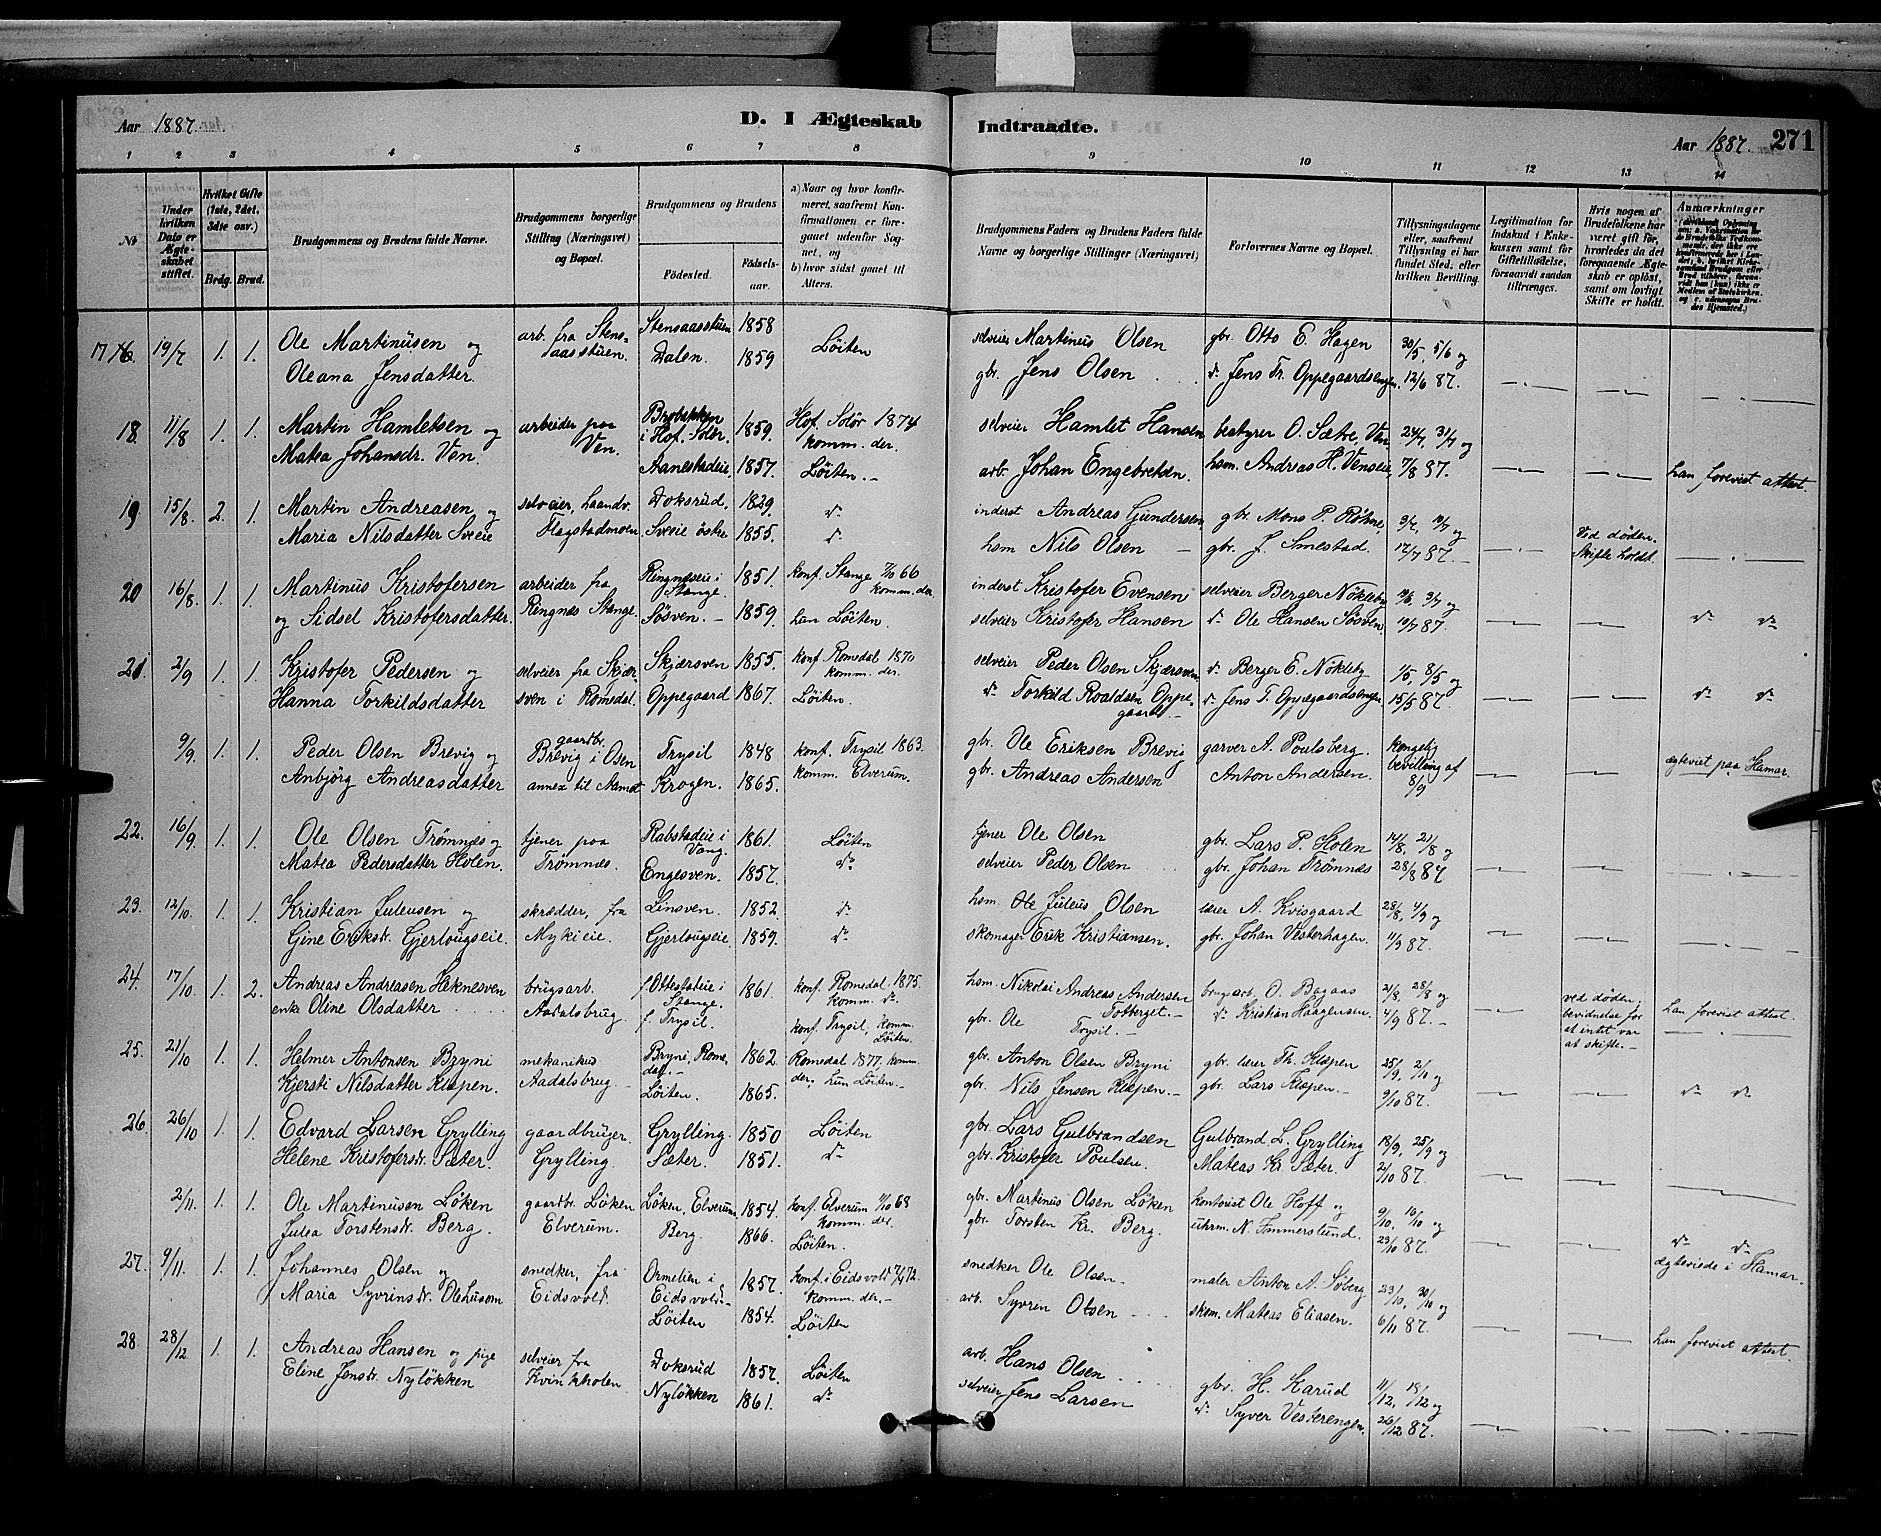 Aar 1887.
D. I Ægteskab
Indtraadte.
Aar 1887. 271
1 2 3 4 5 6 7 8 9 10 11 12 13 14
No
Under hvilken Dato er Ægteskabet stiftet.
Hvilket Gifte (1ste, 2det, 3dte osv.)
Brdg. Brud.
Brudgommens og Brudens fulde Navne.
Brudgommens borgerlige Stilling (Næringsvei) og Bopæl.
Brudgommens og Brudens
Födested.
Födselsaar.
a) Naar og hvor konfirmeret, saafremt Konfirmationen er foregaaet udenfor Sognet, og
b) hvor sidst gaaet til Alters.
Brudgommens Faders og Brudens Faders fulde Navne og borgerlige Stillinger (Næringsvei)
Forlovernes Navne og Bopæl.
Tillysningsdagene eller, saafremt Tillysning ei har fundet Sted, efter hvilken Bevilling.
Legitimation for Indskud i Enkekassen samt for Giftetilladelse, forsaavidt saadan tiltrænges.
Hvis nogen af Brudefolkene har været gift før, hvorledes da det foregaaende Ægteskab er oplöst, samt om lovligt Skifte er holdt.
Anmærkninger
17 16. 19/7 1. 1. Ole Martinusen og arb. fra Stens- Stensaasstuen 1858 Löiten selveier Martinus Olsen gbr. Otto E. Hagen 30/5, 5/6 og
Oleana Jensdatter. aasstuen. Dalen. 1859 gbr. Jens Olsen do Jens Tr. Oppegaardsengen. 12/6 87.
18. 11/8 1. 1. Martin Hamletsen og arbeider paa i Hof. Solör. 1859. Hof. Solör 1874 selveier Hamlet Hansen bestyrer O. Sætre, Ven 24/7, 31/7 og
Matea Johansdr. Ven. Ven. Aanestadeie 1857. komm. der. Löiten.- arb. Johan Engebretsen. hsm. Andreas H. Venseie, 7/8 87. han forevist attest.
19 15/8. 2. 1. Martin Andreasen og selveier, haandv. Doksrud, 1829. do inderst Andreas Gundersen gbr. Mons P. Röhne, 3/7, 10/7 og
Maria Nilsdatter Sveie Hagstadmoen Sveie östre 1855. do hsm Nils Olsen gbr. J. Smestad. 17/7 87. Ved döden. Skifte holdt.
20 16/8. 1. 1. Martinus Kristofersen arbeider fra Ringneseie i Stange. 1851. konf. Stange 7/10 66 komm. der inderst Kristofer Evensen selveier Berger Nökleby 3/7 og
og Sidsel Kristofersdatter. Ringnæs Stange. Sösven. - 1859. hun Löiten. selveier Kristofer Hansen do Ole Hansen Sösven 10/7 87. do do
21. 2/9 1. 1. Kristofer Pedersen og selveier fra Skjær- Skjærsven 1855. konf Romedal 1870 komm. der. selveier Peder Olsen Skjærsven do Berger E. Nökleby 1/5, 8/5 og
Hanna Torkildsdatter sven i Romedal. Oppegaard 1867. Löiten. do Torkild Roaldsen Oppegaard.- do Jens T. Oppegaardsengen 15/5 87. do do
9/9. 1. 1. Peder Olsen Brevig og gaardbr. Brevig i Osen Trysil 1848 konf. Trysil 1863. gbr. Ole Eriksen Brevig garver A. Poulsberg. Kongelig
Anbjörg Andreasdatter annex til Aamot Krogen. 1865. komm. Elverum. gbr. Andreas Andersen Anton Andersen. bevilling af 8/9 ægteviet paa Hamar.
22. 16/9. 1. 1. Ole Olsen Trömnes og tjener paa Rabstadeie i Vang. 1861. Löiten tjner Ole Olsen gbr. Lars P. Holen 14/8, 21/8 og
Matea Pedersdatter Holen. Trömnæs. Engesven. 1857. do selveier Peder Olsen gbr. Johan Trömnæs 28/8 87
23. 12/10. 1. 1. Kristian Juleusen og skrædder, fra Linsven. 1852. do hsm. Ole Juleus Olsen lærer A. Kvisgaard 28/8, 4/9 og
Gjine Eriksdr. Gjerlougseie. Mykieie. Gjerlougseie. 1859. do skomager Erik Kristiansen. gbr. Johan Vesterhagen. 11/9 87.
24. 17/10. 1. 2. Andreas Andreasen Heknesven brugsarb. f. Ottestadeie i Stange. 1861. konf. Romedal 1875. komm. do. hsm. Nikolai Andreas Andersen brugsarb. O. Bagaas 21/8, 28/8 og
enke Oline Olsdatter Aadalsbrug. f. Trysil. konf. Trysil, komm. Löiten. gbr. Ole Trysil.- do Kristian Haagensen. 4/9 87.- ved döden, bevidnelse for at intet var at skifte.- han forevist attest.
25. 21/10 1. 1. Helmer Antonsen Bryni mekanikus Bryni, Romedal.- 1862. Romedal 1877, komm gbr. Anton Olsen Bryni gbr. lærer Th. Klæpen 25/9, 2/10 og
Kjersti Nilsdatter Klæpen. Aadalsbrug. Löiten. 1865. der, hun Löiten.- gbr. Nils Jensen Klæpen.- gbr. Lars Klæpen.- 9/10 87. do do
26. 26/10 1. 1. Edvard Larsen Grylling gaardbruger. Grylling. 1850 Löiten gbr. Lars Gulbrandsen Gulbrand L. Grylling 18/9, 25/9 og
Helene Kristofersdr. Sæter. Grylling. Sæter. 1851. do gbr. Kristofer Poulsen. Mateas Kr. Sæter. 2/10 87.
2/11. 1. 1. Ole Martinusen Löken gaardbr. Löken Löken, Elverum. 1854. konf. Elverum 68 komm. der. gbr. Martinus Olsen Löken kontorist Ole Hoff og 9/10, 16/10 og
Julea Torstensdr. Berg. Elverum. Berg. 1866. Löiten. gbr. Torsten Kr. Berg. uhrm. N. Ammerstund. 23/10 87. do do
27. 9/11. 1. 1. Johannes Olsen og snedker, fra i Eidsvold. 1857. konf. i Eidsvold 72. komm. der.- snedker Ole Olsen maler Anton A. Söberg 23/10, 30/10 og ægteviede i Hamar.
Maria Syvrinsdr. Olehusom Eidsvold. Löiten 1854. Löiten arb. Syvrin Olsen skom. Mateas Eliasen. 6/11 87. han forevist attest.
28. 28/12 1. 1. Andreas Hansen og pige selveier fra Doksrud 1857. Löiten arb. Hans Olsen gbr. H. Karud 11/12, 18/12 og
Eline Jensdr. Nylökken Nylökken 1861. do selveier Jens Larsen do Syver Vesterengen. 26/12 87.